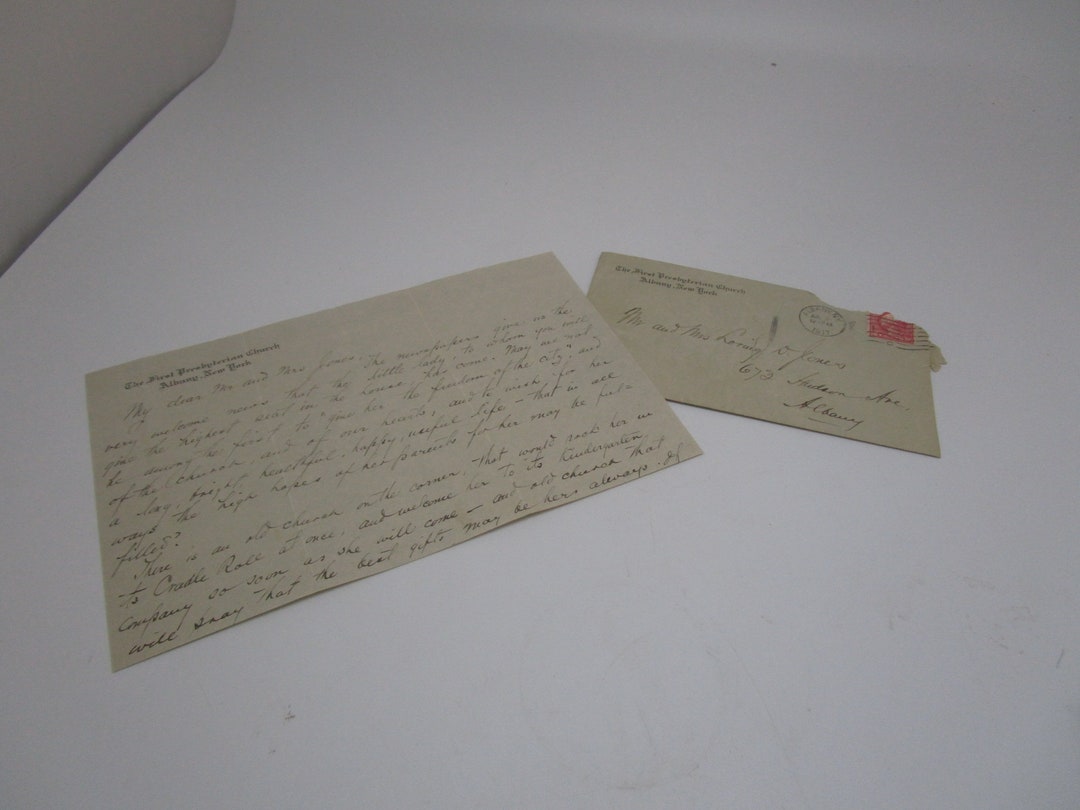 The First Presbyterian Church
Albany, New York
My dear Mr and Mrs Jones, The newspapers give us the
very welcome news that the little lady, to whom you will
give the highest seat in the house, has come. May we not
be among the first to give her the freedom of the city, and
of the church, and of our hearts; and to wish for her
a long, bright, healthful, happy, useful life – that in all
ways the high hopes of her parents for her may be ful=
filled?
There is an old church on the corner, that would rock her in
its Cradle Roll at once, and welcome her to its Kindergarten
company so soon as she will come – and old church that
will pray that the best gifts may be hers always.
The First Presbyterian Church
Albany, New York
Mr and Mrs Loring D Jones
673 Hudson Ave.
Albany